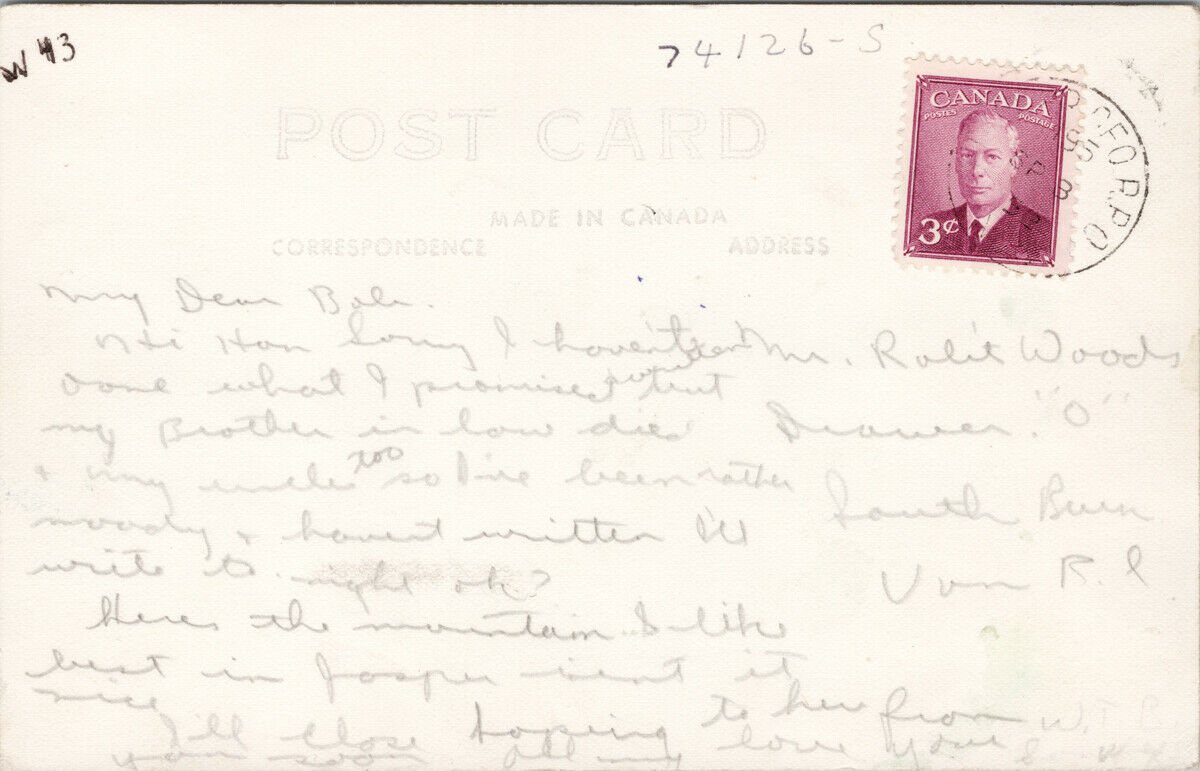 W 43
74126-S
POST CARD
MADE IN CANADA
CORRESPONDENCE
ADDRESS
CANADA
POSTES POSTAGE
3¢
GEO R.P.O
95
SP 8
My Dear Bob.
Hi Hon Sorry I haven't sent
done what I promised but
my Brother in law died
& my uncle too so I've been rather
moody & haven't written I'll
write to night ok?
Heres the mountain I like
best in Jasper isent it
nice
I'll close hoping to her from
you soon all my love your
Mr. Rob't Woods
Drawer. "O"
South Burn
Van